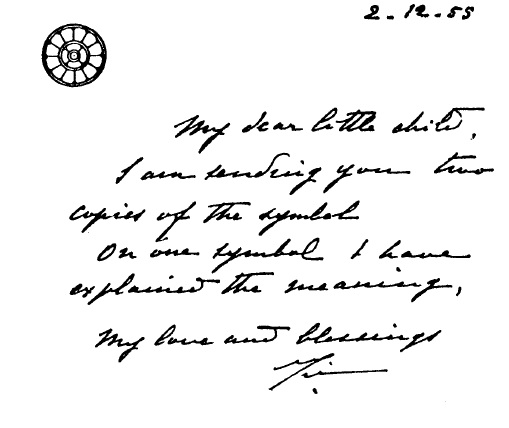 2-12-55
My dear little child,
I am sending you two
copies of the symbol
On one symbol I have
explained the meaning,
My love and blessings